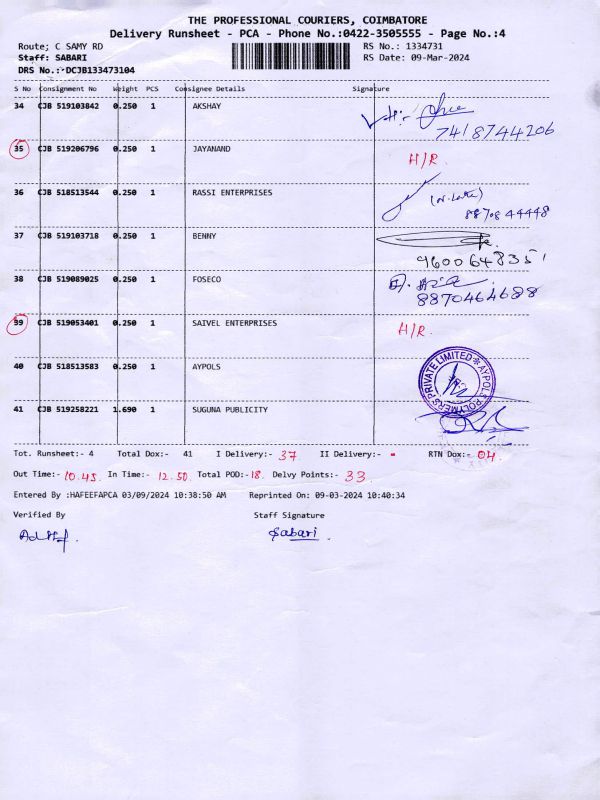 THE PROFESSIONAL COURIERS, COIMBATORE
Delivery Runsheet - PCA - Phone No.:0422-3505555 - Page No.:4
Route; C SAMY RD RS No.: 1334731
Staff: SABARI RS Date: 09-Mar-2024
DRS No.:-DCJB133473104
S No Consignment No Weight PCS Consignee Details Signature
34 CJB 519103842 0.250 1 AKSHAY
7418744206
35 CJB 519206796 0.250 1 JAYANAND H/R.
36 CJB 518513544 0.250 1 RASSI ENTERPRISES
8870844448
37 CJB 519103718 0.250 1 BENNY
9600648351
38 CJB 519089025 0.250 1 FOSECO
8870464688
39 CJB 519053401 0.250 1 SAIVEL ENTERPRISES H/R.
40 CJB 518513583 0.250 1 AYPOLS
AYPOLS POLYMERS PRIVATE LIMITED
41 CJB 519258221 1.690 1 SUGUNA PUBLICITY
Tot. Runsheet:- 4 Total Dox:- 41 I Delivery:- 37 II Delivery:- - RTN Dox:- 04.
Out Time:- 10.45 In Time:- 12.50 Total POD:- 18. Delvy Points:- 33.
Entered By :HAFEEFAPCA 03/09/2024 10:38:50 AM Reprinted On: 09-03-2024 10:40:34
Verified By Staff Signature
Sabari.